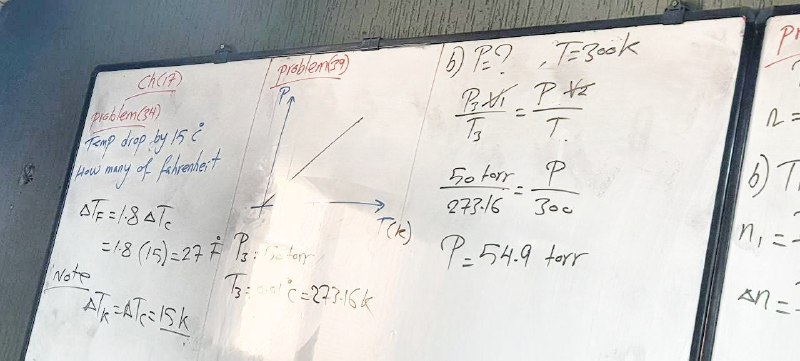 Ch(17)
problem(34)
Temp drop by 15 c°
How many of fahrenheit
ΔTF = 1.8 ΔTc
= 1.8 (15) = 27 F°
Note
ΔTk = ΔTc = 15 k
problem(39)
P
T(k)
P3 = 50 torr
T3 = 0.01 c° = 273.16 k
b) P = ? , T = 300k
P3 V1 / T3 = P V2 / T
50 torr / 273.16 = P / 300
P = 54.9 torr
Pr
n =
b) T
n1 =
Δn =